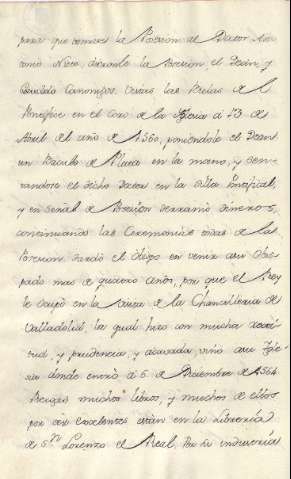 para que tomase la Posecion al Doctor Anto
onio Nieto, dieronle la posecion el Dean, y
Cavildo Canonigos. Vistas las Bulas de el
Pontifice en el Coro de la Iglesia a 13 de
Abril de el año de 1560, poniendole el Dean
un Baculo de Plata en la mano, y sen-
tandose el dicho Doctor en la silla Pontifical,
y en señal de Posecion derramó dineros,
continuando las Ceremonias todas de la
Posecion. tardó el Obispo en venir a su Obis-
pado mas de quatro años, por que el Rey
le ocupó en la visita de la Chancilleria de
Valladolid, la qual hizo con mucha recti-
tud, y prudencia, y acavada vino a su Igle-
sia donde entró a 6 de Diciembre de 1564
Recogio muchos libros, y muchos de ellos
por ser excelentes están en la Libreria
de Sn. Lorenzo el Real. Por la industria